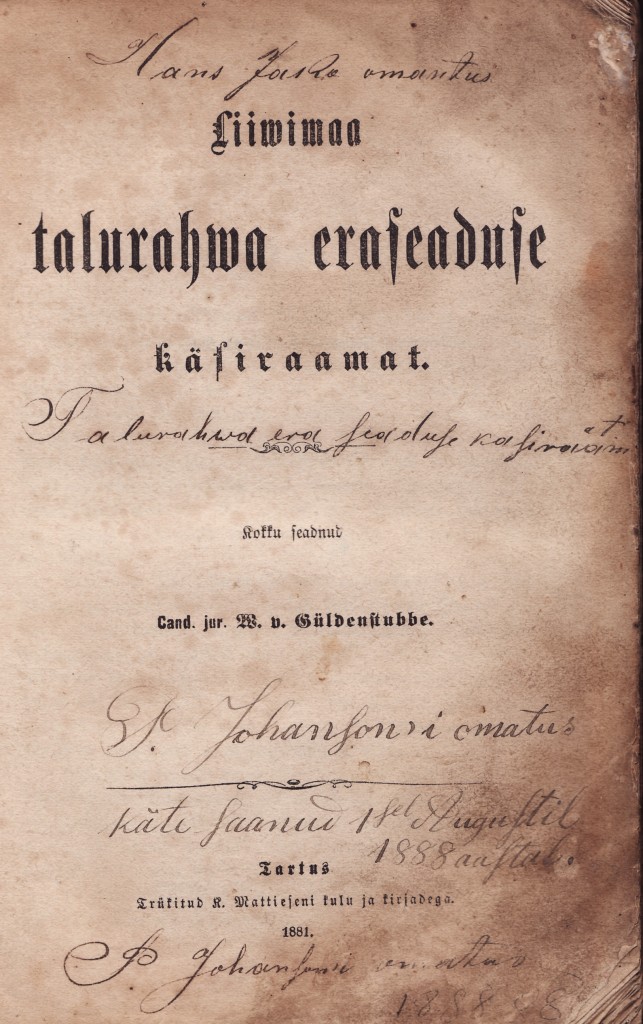 Hans Jaska omantus
Liiwimaa
talurahwa eraseaduse
käsiraamat.
Talurahwa era seaduse kasiraamt
Kokku seadnud
Cand. jur. W. v. Güldenstubbe.
P. Johanson'i omatus
käte saanud 1sel Augustil
1888 aastal.
Tartus
Trükitud K. Mattieseni kulu ja kirjadega.
1881.
P Johansoni omatus
1888